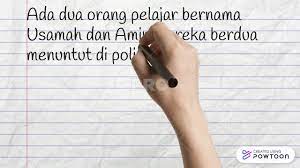 Ada dua orang pelajar bernama
Usamah dan Amin
berdua
menuntut di
CREATED USING
POWTOON